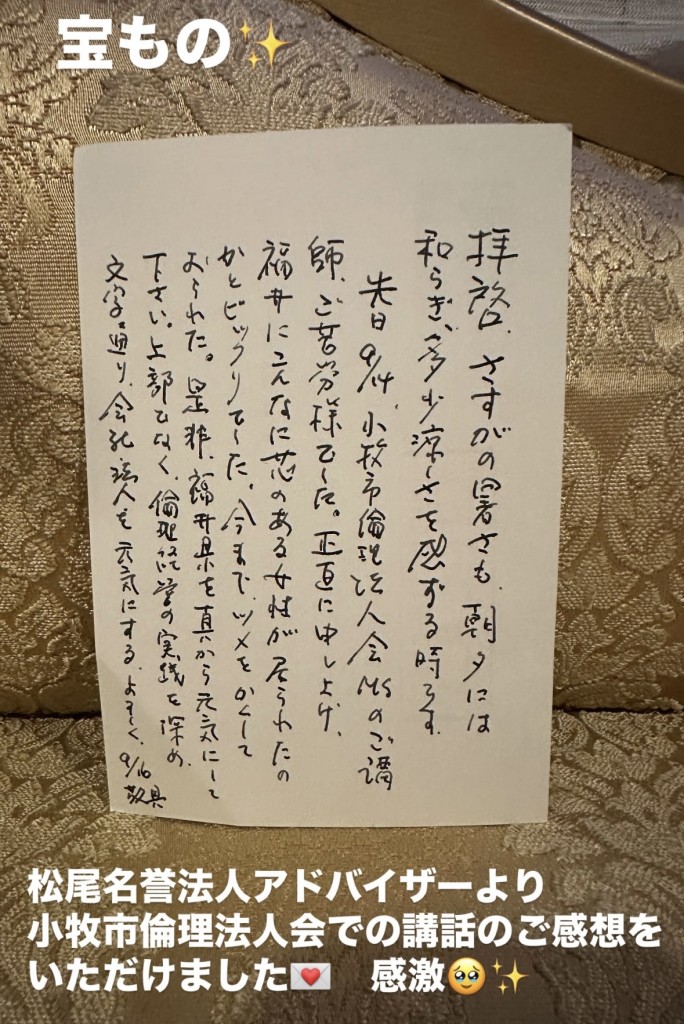 宝もの✨
拝啓、さすがの暑さも、朝夕には
和らぎ、多少涼しさを感ずる時です。
先日9/14、小牧市倫理法人会MSのご講
師、ご苦労様でした。正直に申し上げ、
福井にこんなに芯のある女性が居られたの
かとビックリでした。今まで、ツメをかくして
おられた。是非、福井県を真から元気にして
下さい。上部でなく、倫理経営の実践を深め、
文字通り、会社、法人を元気にする、よすく、9/16
敬具
松尾名誉法人アドバイザーより
小牧市倫理法人会での講話のご感想を
いただけました💌 感激🥹✨